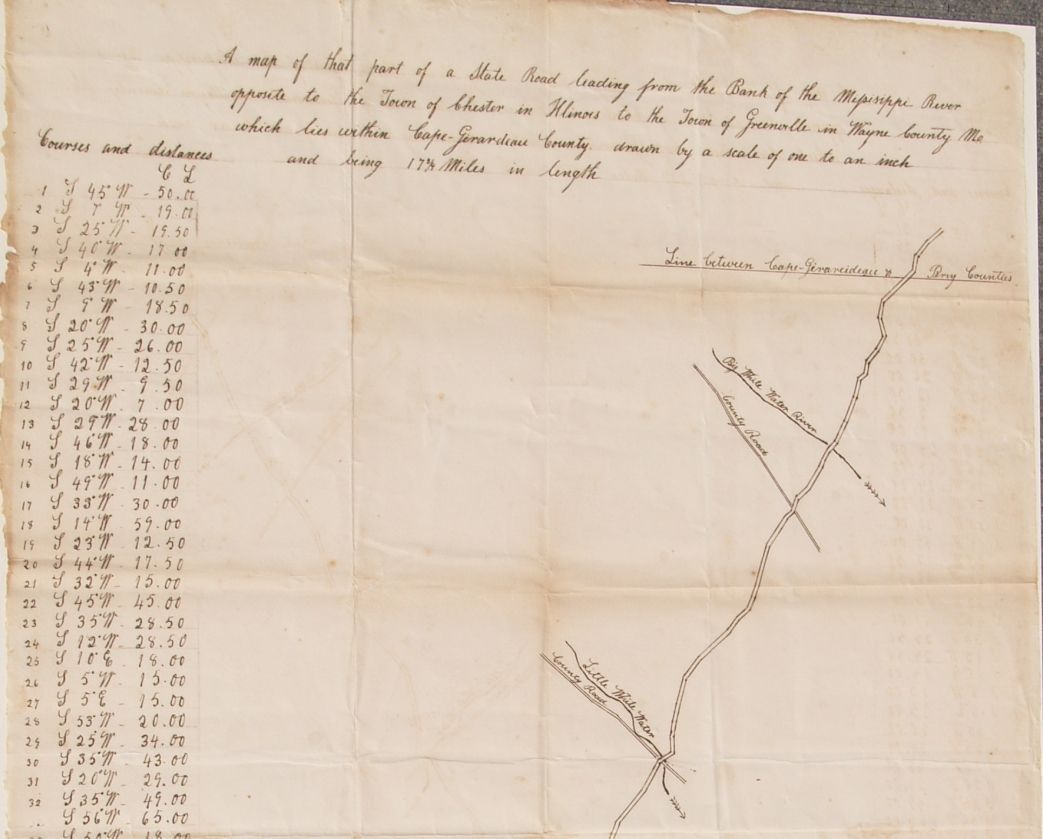 A map of that part of a State Road leading from the Bank of the Mepisippi River
opposite to the Town of Chester in Illinois to the Town of Greenville in Wayne County Mo
which lies within Cape-Girardeau County. drawn by a scale of one to an inch
and being 17¾ Miles in length
Courses and distances
C L
1 S 45°W - 50.00
2 S 7°W - 19.00
3 S 25°W - 19.50
4 S 40°W - 17.00
5 S 4°W - 11.00
6 S 43°W - 10.50
7 S 9°W - 18.50
8 S 20°W - 30.00
9 S 25°W - 26.00
10 S 42°W - 12.50
11 S 29°W - 9.50
12 S 20°W - 7.00
13 S 29°W - 28.00
14 S 46°W - 18.00
15 S 18°W - 14.00
16 S 49°W - 11.00
17 S 33°W - 30.00
18 S 14°W - 59.00
19 S 23°W - 12.50
20 S 44°W - 17.50
21 S 32°W - 15.00
22 S 45°W - 45.00
23 S 35°W - 28.50
24 S 12°W - 28.50
25 S 10°E - 18.00
26 S 5°W - 15.00
27 S 5°E - 15.00
28 S 53°W - 20.00
29 S 25°W - 34.00
30 S 35°W - 43.00
31 S 20°W - 29.00
32 S 35°W - 49.00
S 56°W - 65.00
Line between Cape-Girareideau & Perry Counties
Big White Water River
County Road
Little White Water
County Road